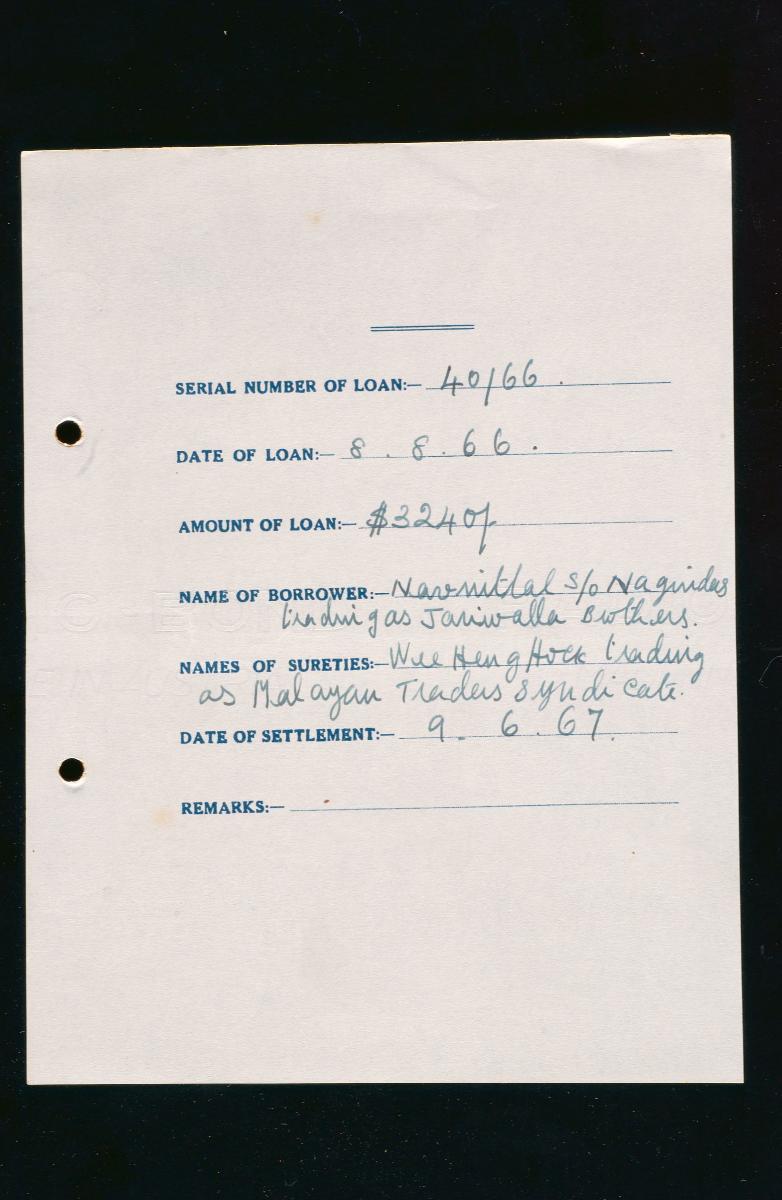 SERIAL NUMBER OF LOAN:— 40/66.
DATE OF LOAN:— 8.8.66.
AMOUNT OF LOAN:— $3240/-
NAME OF BORROWER:— Navnitlal s/o Nagindas
trading as Jariwalla Brothers.
NAMES OF SURETIES:— Wee Heng Hock trading
as Malayan Traders Syndicate.
DATE OF SETTLEMENT:— 9.6.67.
REMARKS:—